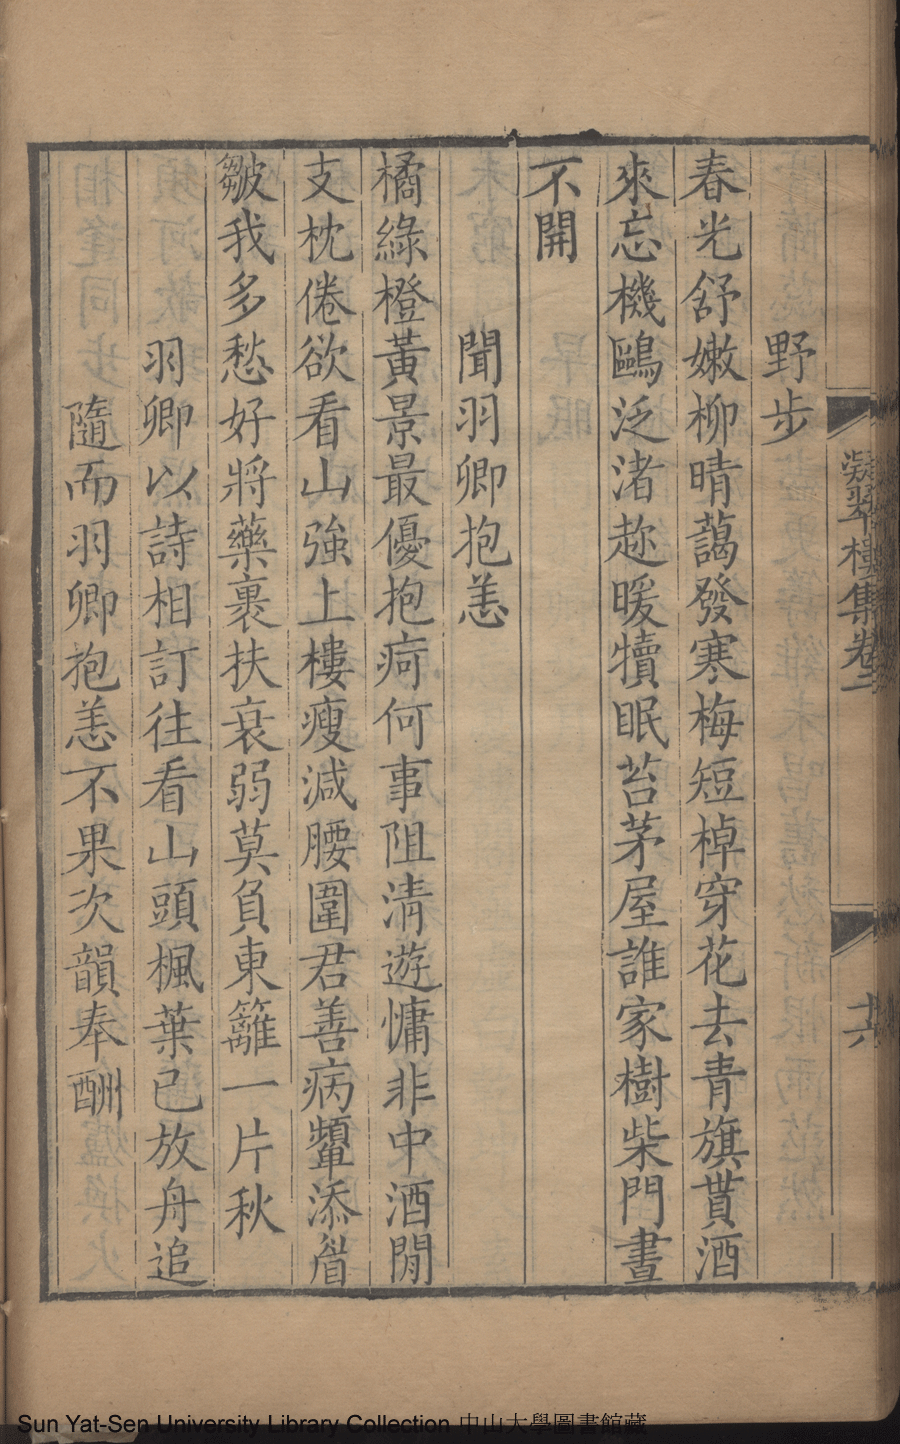 凝翠樓集卷二
十六
野步
春光舒嫩柳晴藹發寒梅短棹穿花去青旗貰酒
來忘機鷗泛渚趂暖犢眠苔茅屋誰家樹柴門晝
不開
聞羽卿抱恙
橘綠橙黃景最優抱疴何事阻清遊慵非中酒閒
支枕倦欲看山強上樓瘦減腰圍君善病顰添眉
皺我多愁好將藥裹扶衰弱莫負東籬一片秋
羽卿以詩相訂往看山頭楓葉已放舟追
隨而羽卿抱恙不果次韻奉酬
Sun Yat-Sen University Library Collection 中山大學圖書館藏